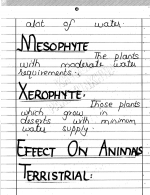 alot of water.
MESOPHYTE
The plants
with moderate water
requirements.
XEROPHYTE:
Those plants
which grow in
deserts with minimum
water supply.
EFFECT ON ANIMALS
TERRISTRIAL: